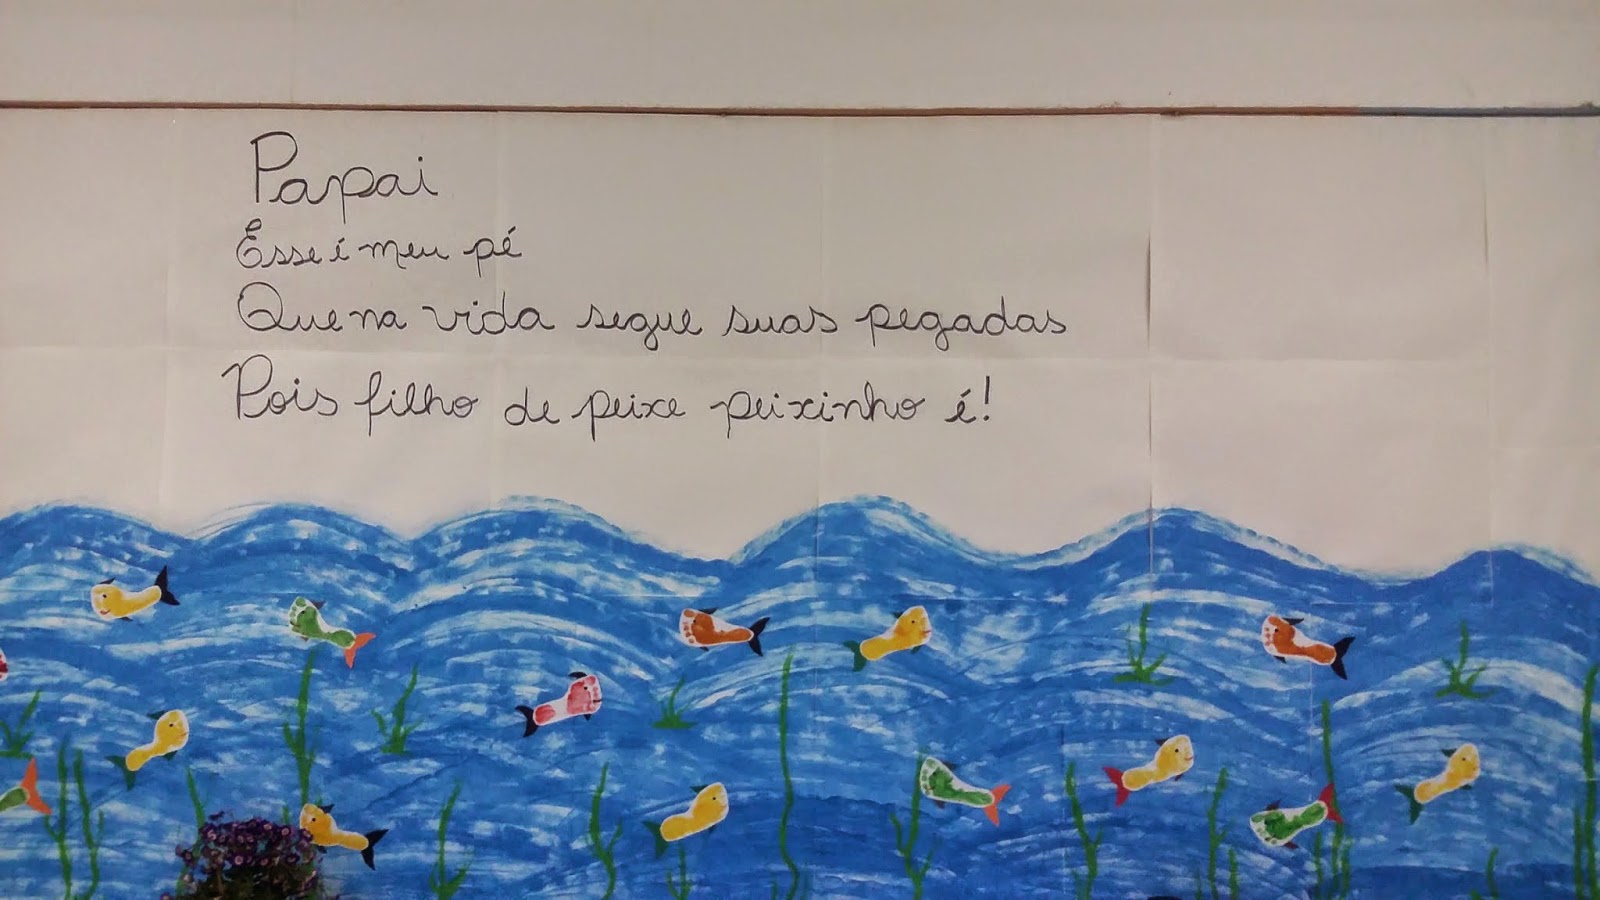 Papai
Esse é meu pé
Que na vida segue suas pegadas
Pois filho de peixe peixinho é!